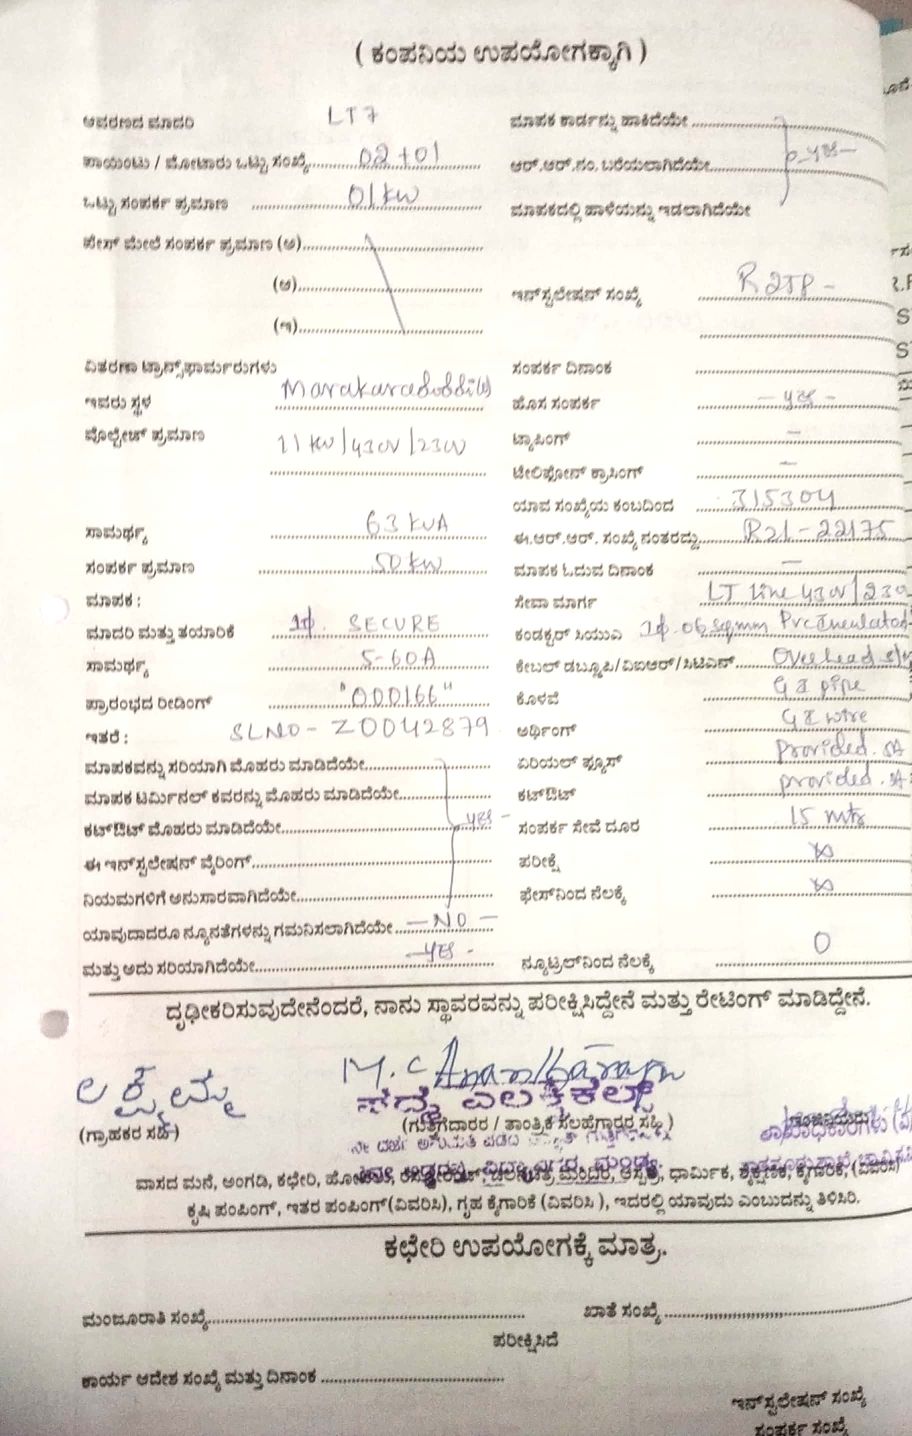 ( ಕಂಪನಿಯ ಉಪಯೋಗಕ್ಕಾಗಿ )
ಆವರಣದ ಮಾದರಿ LT7
ಪಾಯಿಂಟು / ಮೋಟಾರು ಒಟ್ಟು ಸಂಖ್ಯೆ 02+01
ಒಟ್ಟು ಸಂಪರ್ಕ ಪ್ರಮಾಣ 01KW
ಫೇಸ್ ಮೇಲೆ ಸಂಪರ್ಕ ಪ್ರಮಾಣ (ಅ)
(ಆ)
(ಇ)
ವಿತರಣಾ ಟ್ರಾನ್ಸ್‌ಫಾರ್ಮರುಗಳು
ಇವರು ಸ್ಥಳ
ವೋಲ್ಟೇಜ್ ಪ್ರಮಾಣ 11KV/430V/230V
ಸಾಮರ್ಥ್ಯ 63 KVA
ಸಂಪರ್ಕ ಪ್ರಮಾಣ 50 KW
ಮಾಪಕ :
ಮಾದರಿ ಮತ್ತು ತಯಾರಿಕೆ 1ϕ. SECURE
ಸಾಮರ್ಥ್ಯ 5-60A
ಪ್ರಾರಂಭದ ರೀಡಿಂಗ್ "000166"
ಇತರೆ : SLNO- Z0042879
ಮಾಪಕವನ್ನು ಸರಿಯಾಗಿ ಮೊಹರು ಮಾಡಿದೆಯೇ
ಮಾಪಕ ಟರ್ಮಿನಲ್ ಕವರನ್ನು ಮೊಹರು ಮಾಡಿದೆಯೇ
ಕಟ್‌ಔಟ್ ಮೊಹರು ಮಾಡಿದೆಯೇ yes -
ಈ ಇನ್‌ಸ್ಟಲೇಷನ್ ವೈರಿಂಗ್
ನಿಯಮಗಳಿಗೆ ಅನುಸಾರವಾಗಿದೆಯೇ
ಯಾವುದಾದರೂ ನ್ಯೂನತೆಗಳನ್ನು ಗಮನಿಸಲಾಗಿದೆಯೇ - NO -
ಮತ್ತು ಅದು ಸರಿಯಾಗಿದೆಯೇ - yes -
ಮಾಪಕ ಕಾರ್ಡನ್ನು ಹಾಕಿದೆಯೇ
ಆರ್.ಆರ್.ನಂ. ಬರೆಯಲಾಗಿದೆಯೇ yes -
ಮಾಪಕದಲ್ಲಿ ಹಾಳೆಯನ್ನು ಇಡಲಾಗಿದೆಯೇ
ಇನ್‌ಸ್ಟಲೇಷನ್ ಸಂಖ್ಯೆ
ಸಂಪರ್ಕ ದಿನಾಂಕ
ಹೊಸ ಸಂಪರ್ಕ - yes -
ಟ್ಯಾಪಿಂಗ್ -
ಟೆಲಿಫೋನ್ ಕ್ರಾಸಿಂಗ್ -
ಯಾವ ಸಂಖ್ಯೆಯ ಕಂಬದಿಂದ 315304
ಈ.ಆರ್.ಆರ್. ಸಂಖ್ಯೆ ನಂತರದ್ದು R21-22175
ಮಾಪಕ ಓದುವ ದಿನಾಂಕ -
ಸೇವಾ ಮಾರ್ಗ LT Line 430V/230
ಕಂಡಕ್ಟರ್ ಸಿಯುಎ 1ϕ. 06 sqmm Pvc
ಕೇಬಲ್ ಡಬ್ಲ್ಯೂಪಿ/ವಿಐಆರ್/ಸಿಟಿಎಸ್ Overhead
ಕೊಳವೆ GI pipe
ಅರ್ಥಿಂಗ್ GI wire
ಏರಿಯಲ್ ಫ್ಯೂಸ್ Provided. 5A
ಕಟ್‌ಔಟ್ provided. 5A
ಸಂಪರ್ಕ ಸೇವೆ ದೂರ 15 mts
ಪರೀಕ್ಷೆ ∞
ಫೇಸ್‌ನಿಂದ ನೆಲಕ್ಕೆ ∞
ನ್ಯೂಟ್ರಲ್‌ನಿಂದ ನೆಲಕ್ಕೆ 0
ದೃಢೀಕರಿಸುವುದೇನೆಂದರೆ, ನಾನು ಸ್ಥಾವರವನ್ನು ಪರೀಕ್ಷಿಸಿದ್ದೇನೆ ಮತ್ತು ರೇಟಿಂಗ್ ಮಾಡಿದ್ದೇನೆ.
(ಗ್ರಾಹಕರ ಸಹಿ)
(ಗುತ್ತಿಗೆದಾರರ / ತಾಂತ್ರಿಕ ಸಲಹೆಗಾರರ ಸಹಿ)
ವಾಸದ ಮನೆ, ಅಂಗಡಿ, ಕಛೇರಿ, ಹೋಟೆಲು, ಆಸ್ಪತ್ರೆ, ಧಾರ್ಮಿಕ, ಶೈಕ್ಷಣಿಕ, ಕೈಗಾರಿಕೆ, (ವಿವರಿಸಿ)
ಕೃಷಿ ಪಂಪಿಂಗ್, ಇತರ ಪಂಪಿಂಗ್(ವಿವರಿಸಿ), ಗೃಹ ಕೈಗಾರಿಕೆ (ವಿವರಿಸಿ ), ಇದರಲ್ಲಿ ಯಾವುದು ಎಂಬುದನ್ನು ತಿಳಿಸಿರಿ.
ಕಛೇರಿ ಉಪಯೋಗಕ್ಕೆ ಮಾತ್ರ.
ಮಂಜೂರಾತಿ ಸಂಖ್ಯೆ ಖಾತೆ ಸಂಖ್ಯೆ
ಪರೀಕ್ಷಿಸಿದೆ
ಕಾರ್ಯ ಆದೇಶ ಸಂಖ್ಯೆ ಮತ್ತು ದಿನಾಂಕ
ಇನ್‌ಸ್ಟಲೇಷನ್ ಸಂಖ್ಯೆ
ಸಂಪರ್ಕ ಸಂಖ್ಯೆ